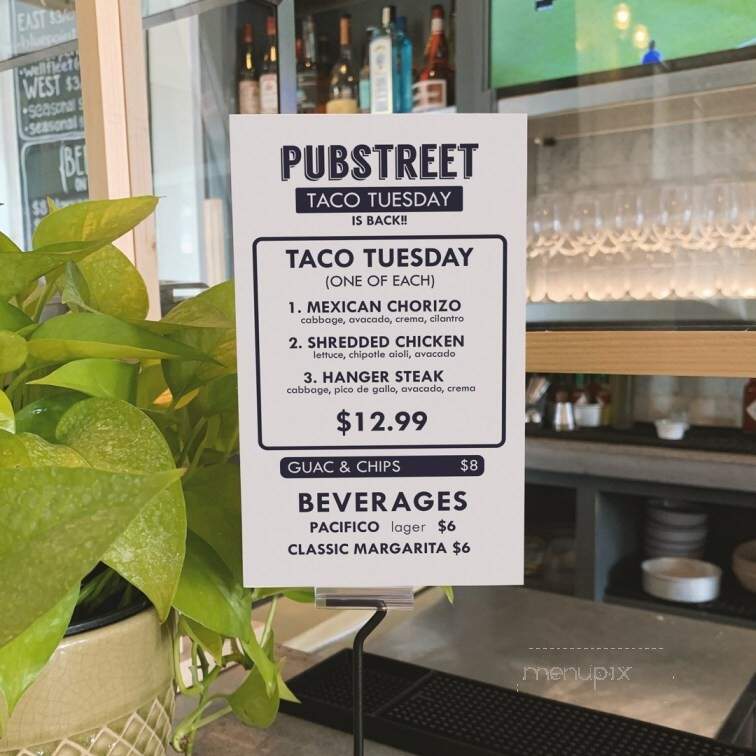 EAST $3
WEST $3
•seasonal
•seasonal
PUBSTREET
TACO TUESDAY
IS BACK!!
TACO TUESDAY
(ONE OF EACH)
1. MEXICAN CHORIZO
cabbage, avacado, crema, cilantro
2. SHREDDED CHICKEN
lettuce, chipotle aioli, avacado
3. HANGER STEAK
cabbage, pico de gallo, avacado, crema
$12.99
GUAC & CHIPS $8
BEVERAGES
PACIFICO lager $6
CLASSIC MARGARITA $6
menupix